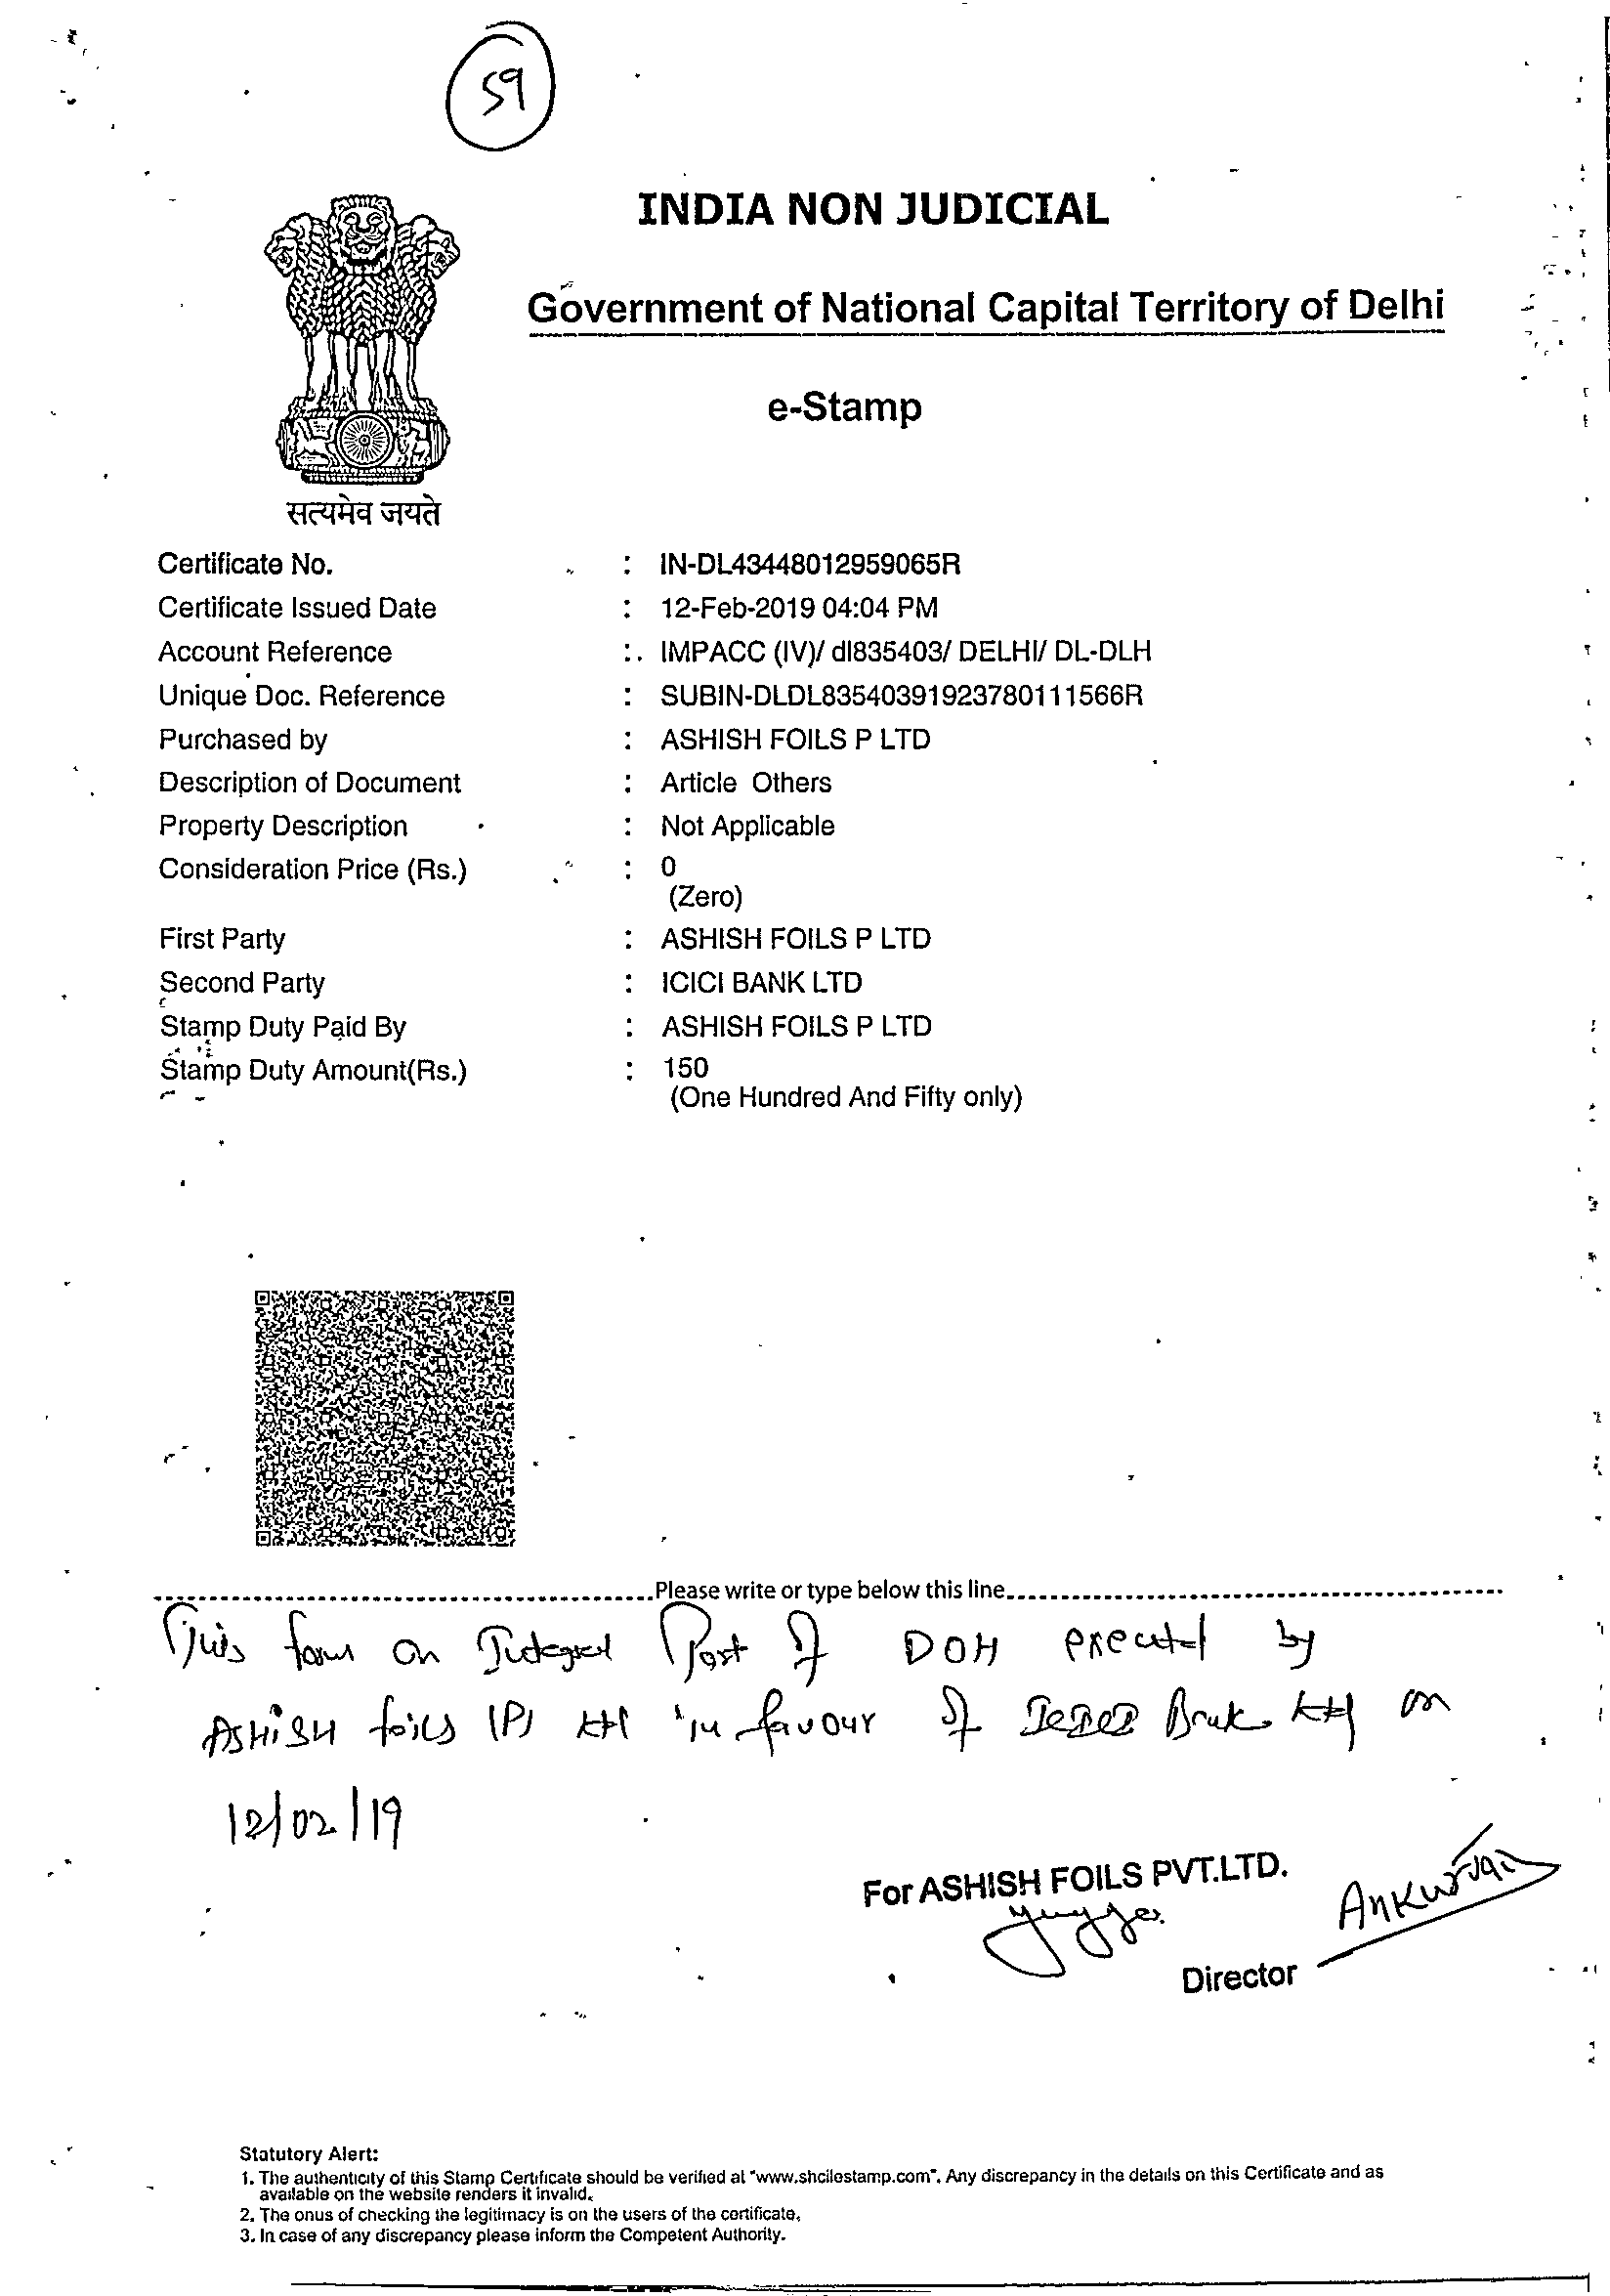 59
INDIA NON JUDICIAL
Government of National Capital Territory of Delhi
e-Stamp
सत्यमेव जयते
Certificate No. : IN-DL43448012959065R
Certificate Issued Date : 12-Feb-2019 04:04 PM
Account Reference : IMPACC (IV)/ dl835403/ DELHI/ DL-DLH
Unique Doc. Reference : SUBIN-DLDL83540391923780111566R
Purchased by : ASHISH FOILS P LTD
Description of Document : Article Others
Property Description : Not Applicable
Consideration Price (Rs.) : 0
(Zero)
First Party : ASHISH FOILS P LTD
Second Party : ICICI BANK LTD
Stamp Duty Paid By : ASHISH FOILS P LTD
Stamp Duty Amount(Rs.) : 150
(One Hundred And Fifty only)
Please write or type below this line
This form an Integral Part of DOH executed by
ASHISH foils (P) Ltd in favour of ICICI Bank Ltd on
12/02/19
For ASHISH FOILS PVT.LTD.
Ankur Jain
Director
Statutory Alert:
1. The authenticity of this Stamp Certificate should be verified at "www.shcilestamp.com". Any discrepancy in the details on this Certificate and as
available on the website renders it invalid.
2. The onus of checking the legitimacy is on the users of the certificate.
3. In case of any discrepancy please inform the Competent Authority.